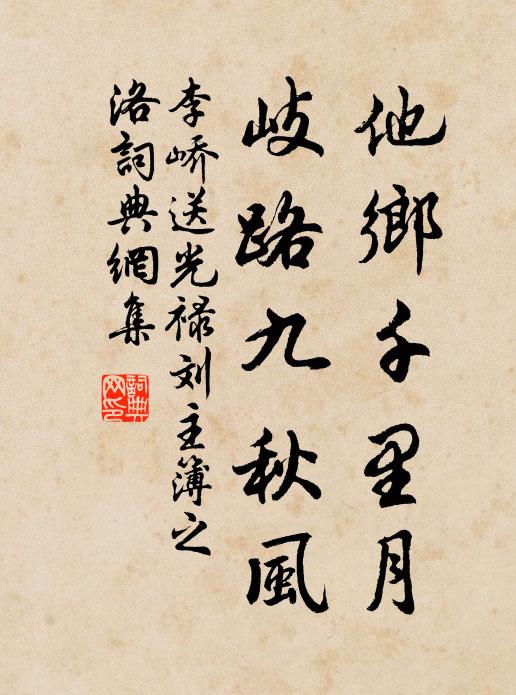 他鄉千里月
歧路九秋風
李嶠送光祿刘主簿之
洛詞典網集
詞典
网印